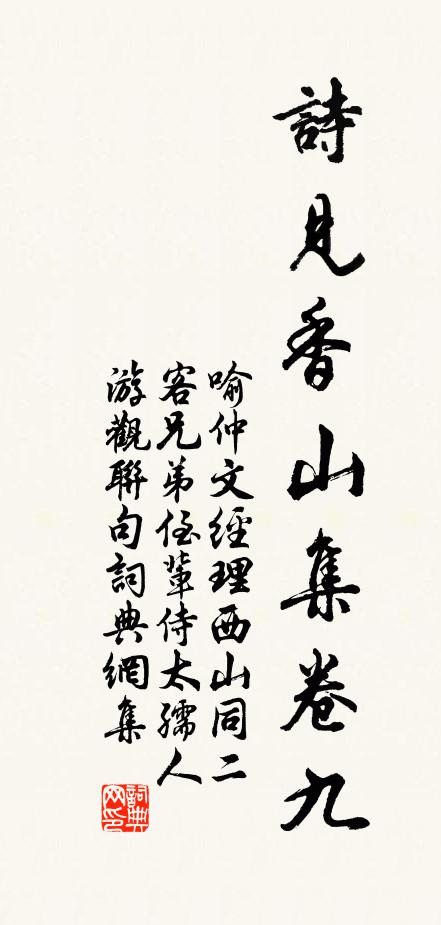 詩見香山集卷九
喻仲文經理西山同二
客兄弟侄輩侍太孺人
游觀聯句詞典網集
詞典
网印